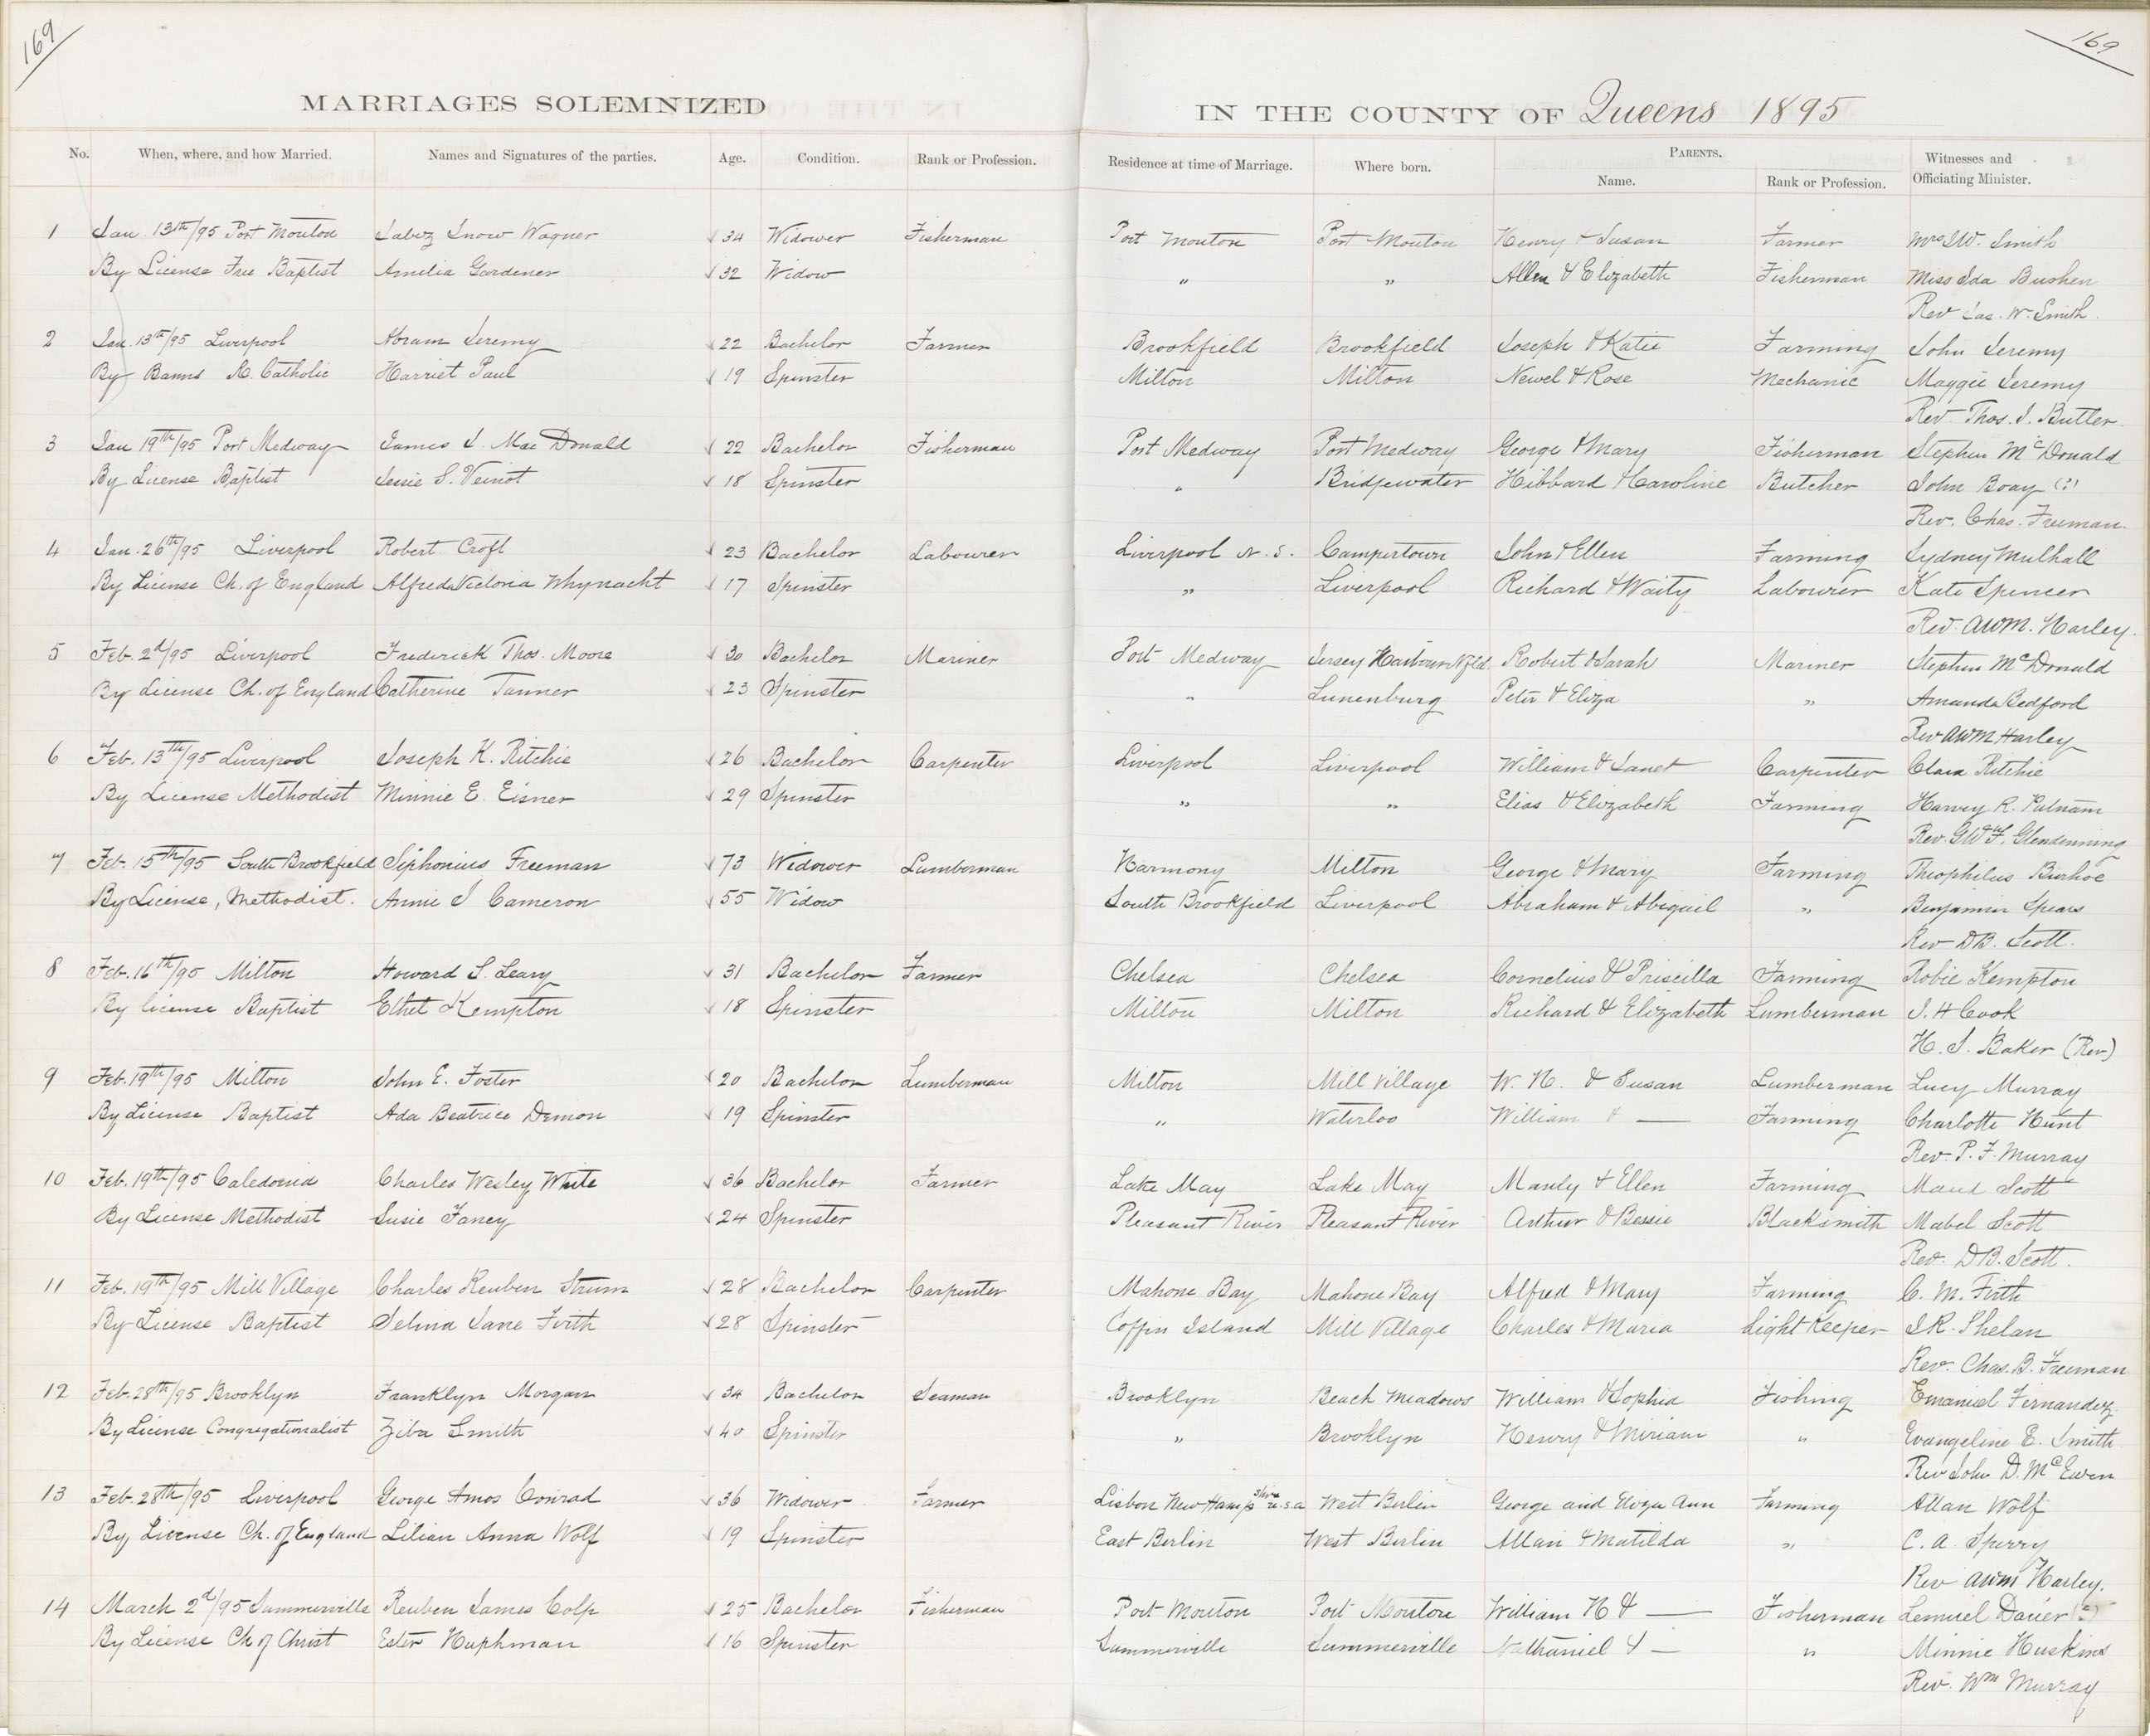 169
169
MARRIAGES SOLEMNIZED
IN THE COUNTY OF Queens 1895
No. When, where, and how Married. Names and Signatures of the parties. Age. Condition. Rank or Profession. Residence at time of Marriage. Where born. PARENTS. Name. Rank or Profession. Witnesses and Officiating Minister.
1 Jan 13th/95 Port Mouton Jabez Snow Wagner √ 34 Widower Fisherman Port Mouton Port Mouton Henry & Susan Farmer Mrs J.W. Smith
By License Free Baptist Amelia Gardener √ 32 Widow " " Allen & Elizabeth Fisherman Miss Ida Bushen
Rev Jas. W. Smith.
2 Jan. 13th/95 Liverpool Abram Jeremy √ 22 Bachelor Farmer Brookfield Brookfield Joseph & Katie Farming John Jeremy
By Banns R. Catholic Harriet Paul √ 19 Spinster Milton Milton Newel & Rose Mechanic Maggie Jeremy
Rev. Thos. J. Butler.
3 Jan 19th/95 Port Medway James J. Mac Donald √ 22 Bachelor Fisherman Port Medway Port Medway George & Mary Fisherman Stephen McDonald
By License Baptist Jessie S. Veinot √ 18 Spinster " Bridgewater Hibbard & Caroline Butcher John Boay (?)
Rev. Chas. Freeman.
4 Jan. 26th/95 Liverpool Robert Croft √ 23 Bachelor Labourer Liverpool N.S. Campertown John & Ellen Farming Sydney Mulhall
By License Ch. of England Alfreda Victoria Whynacht √ 17 Spinster " Liverpool Richard & Waity Labourer Kate Spencer
Rev. AWM. Harley.
5 Feb. 2d/95 Liverpool Frederick Thos. Moore √ 30 Bachelor Mariner Port Medway Jersey Harbour Nfld. Robert & Sarah Mariner Stephen McDonald
By License Ch. of England Catherine Tanner √ 23 Spinster " Lunenburg Peter & Eliza " Amanda Bedford
Rev AWM Harley
6 Feb. 13th/95 Liverpool Joseph K. Ritchie √ 26 Bachelor Carpenter Liverpool Liverpool William & Janet Carpenter Clara Ritchie
By License Methodist Minnie E. Eisner √ 29 Spinster " " Elias & Elizabeth Farming Harvey R. Putnam
Rev. GW F. Glendenning
7 Feb. 15th/95 South Brookfield Siphonius Freeman √ 73 Widower Lumberman Harmony Milton George & Mary Farming Theophilus Burhoe
By License, Methodist. Annie J Cameron √ 55 Widow South Brookfield Liverpool Abraham & Abigail " Benjamin Spears
Rev DB. Scott.
8 Feb. 16th/95 Milton Howard S. Leary √ 31 Bachelor Farmer Chelsea Chelsea Cornelius & Priscilla Farming Robie Kempton
By license Baptist Ethel Kempton √ 18 Spinster Milton Milton Richard & Elizabeth Lumberman J. H Cook
H. S. Baker (Rev)
9 Feb. 19th/95 Milton John E. Foster √ 20 Bachelor Lumberman Milton Mill Village W. H. & Susan Lumberman Lucy Murray
By License Baptist Ada Beatrice Demon √ 19 Spinster " Waterloo William & — Farming Charlotte Hunt
Rev. P. F. Murray
10 Feb. 19th/95 Caledonia Charles Wesley White √ 36 Bachelor Farmer Lake May Lake May Manly & Ellen Farming Maud Scott
By License Methodist Susie Fancy √ 24 Spinster Pleasant River Pleasant River Arthur & Bessie Blacksmith Mabel Scott
Rev. DB. Scott.
11 Feb. 19th/95 Mill Village Charles Reuben Strum √ 28 Bachelor Carpenter Mahone Bay Mahone Bay Alfred & Mary Farming C. M. Firth
By License Baptist Selina Jane Firth √ 28 Spinster Coffin Island Mill Village Charles & Maria Light Keeper J.R. Phelan
Rev. Chas. B. Freeman
12 Feb. 28th/95 Brooklyn Franklyn Morgan √ 34 Bachelor Seaman Brooklyn Beach Meadows William & Sophia Fishing Emanuel Fernandez
By License Congregationalist Ziba Smith √ 40 Spinster " Brooklyn Henry & Miriam " Evangeline E. Smith
Rev John D. McEwen
13 Feb. 28th/95 Liverpool George Amos Conrad √ 36 Widower Farmer Lisbon New Hampshire U.S.A West Berlin George and Eliza Ann Farming Allan Wolf
By License Ch. of England Lilian Anna Wolf √ 19 Spinster East Berlin West Berlin Allan & Matilda " C. A. Sperry
Rev AWM Harley.
14 March 2d/95 Summerville Reuben James Colp √ 25 Bachelor Fisherman Port Mouton Port Mouton William H & — Fisherman Lemuel Dauer (?)
By License Ch of Christ Ester Huphman √ 16 Spinster Summerville Summerville Nathaniel & — " Minnie Huskins
Rev. Wm Murray